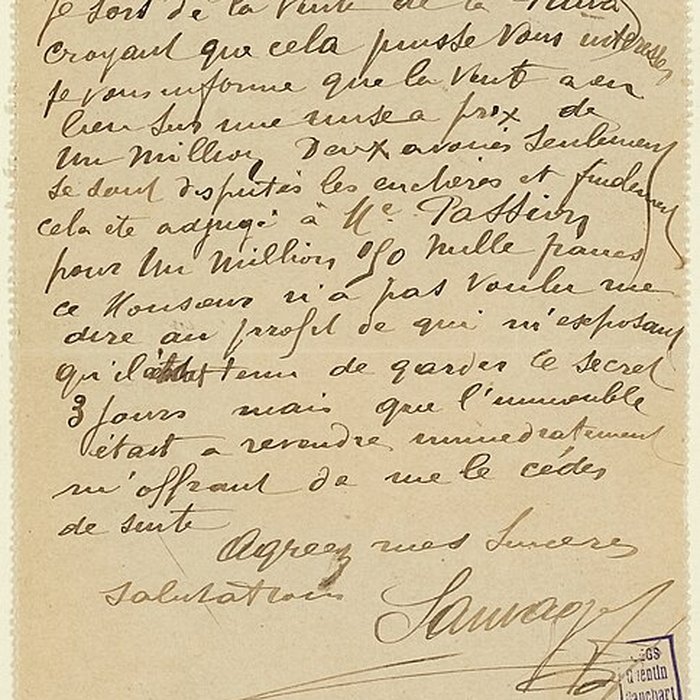 je sors de la vente de la Païva
croyant que cela puisse vous intéresser
je vous informe que la vente a eu
lieu sur une mise a prix de
Un Million, Deux avoués seulement
se sont disputés les enchères et finalement
cela été adjugé à Me Passion
pour Un Million 050 mille francs
ce Monsieur n'a pas voulu me
dire au profit de qui m'exposant
qu'il était tenu de garder le secret
3 jours mais que l'immeuble
était a revendre immediatement
m'offrant de me le céder
de suite
Agreez mes sinceres
salutations
Sauvage
LEGS
Quentin
Bauchart